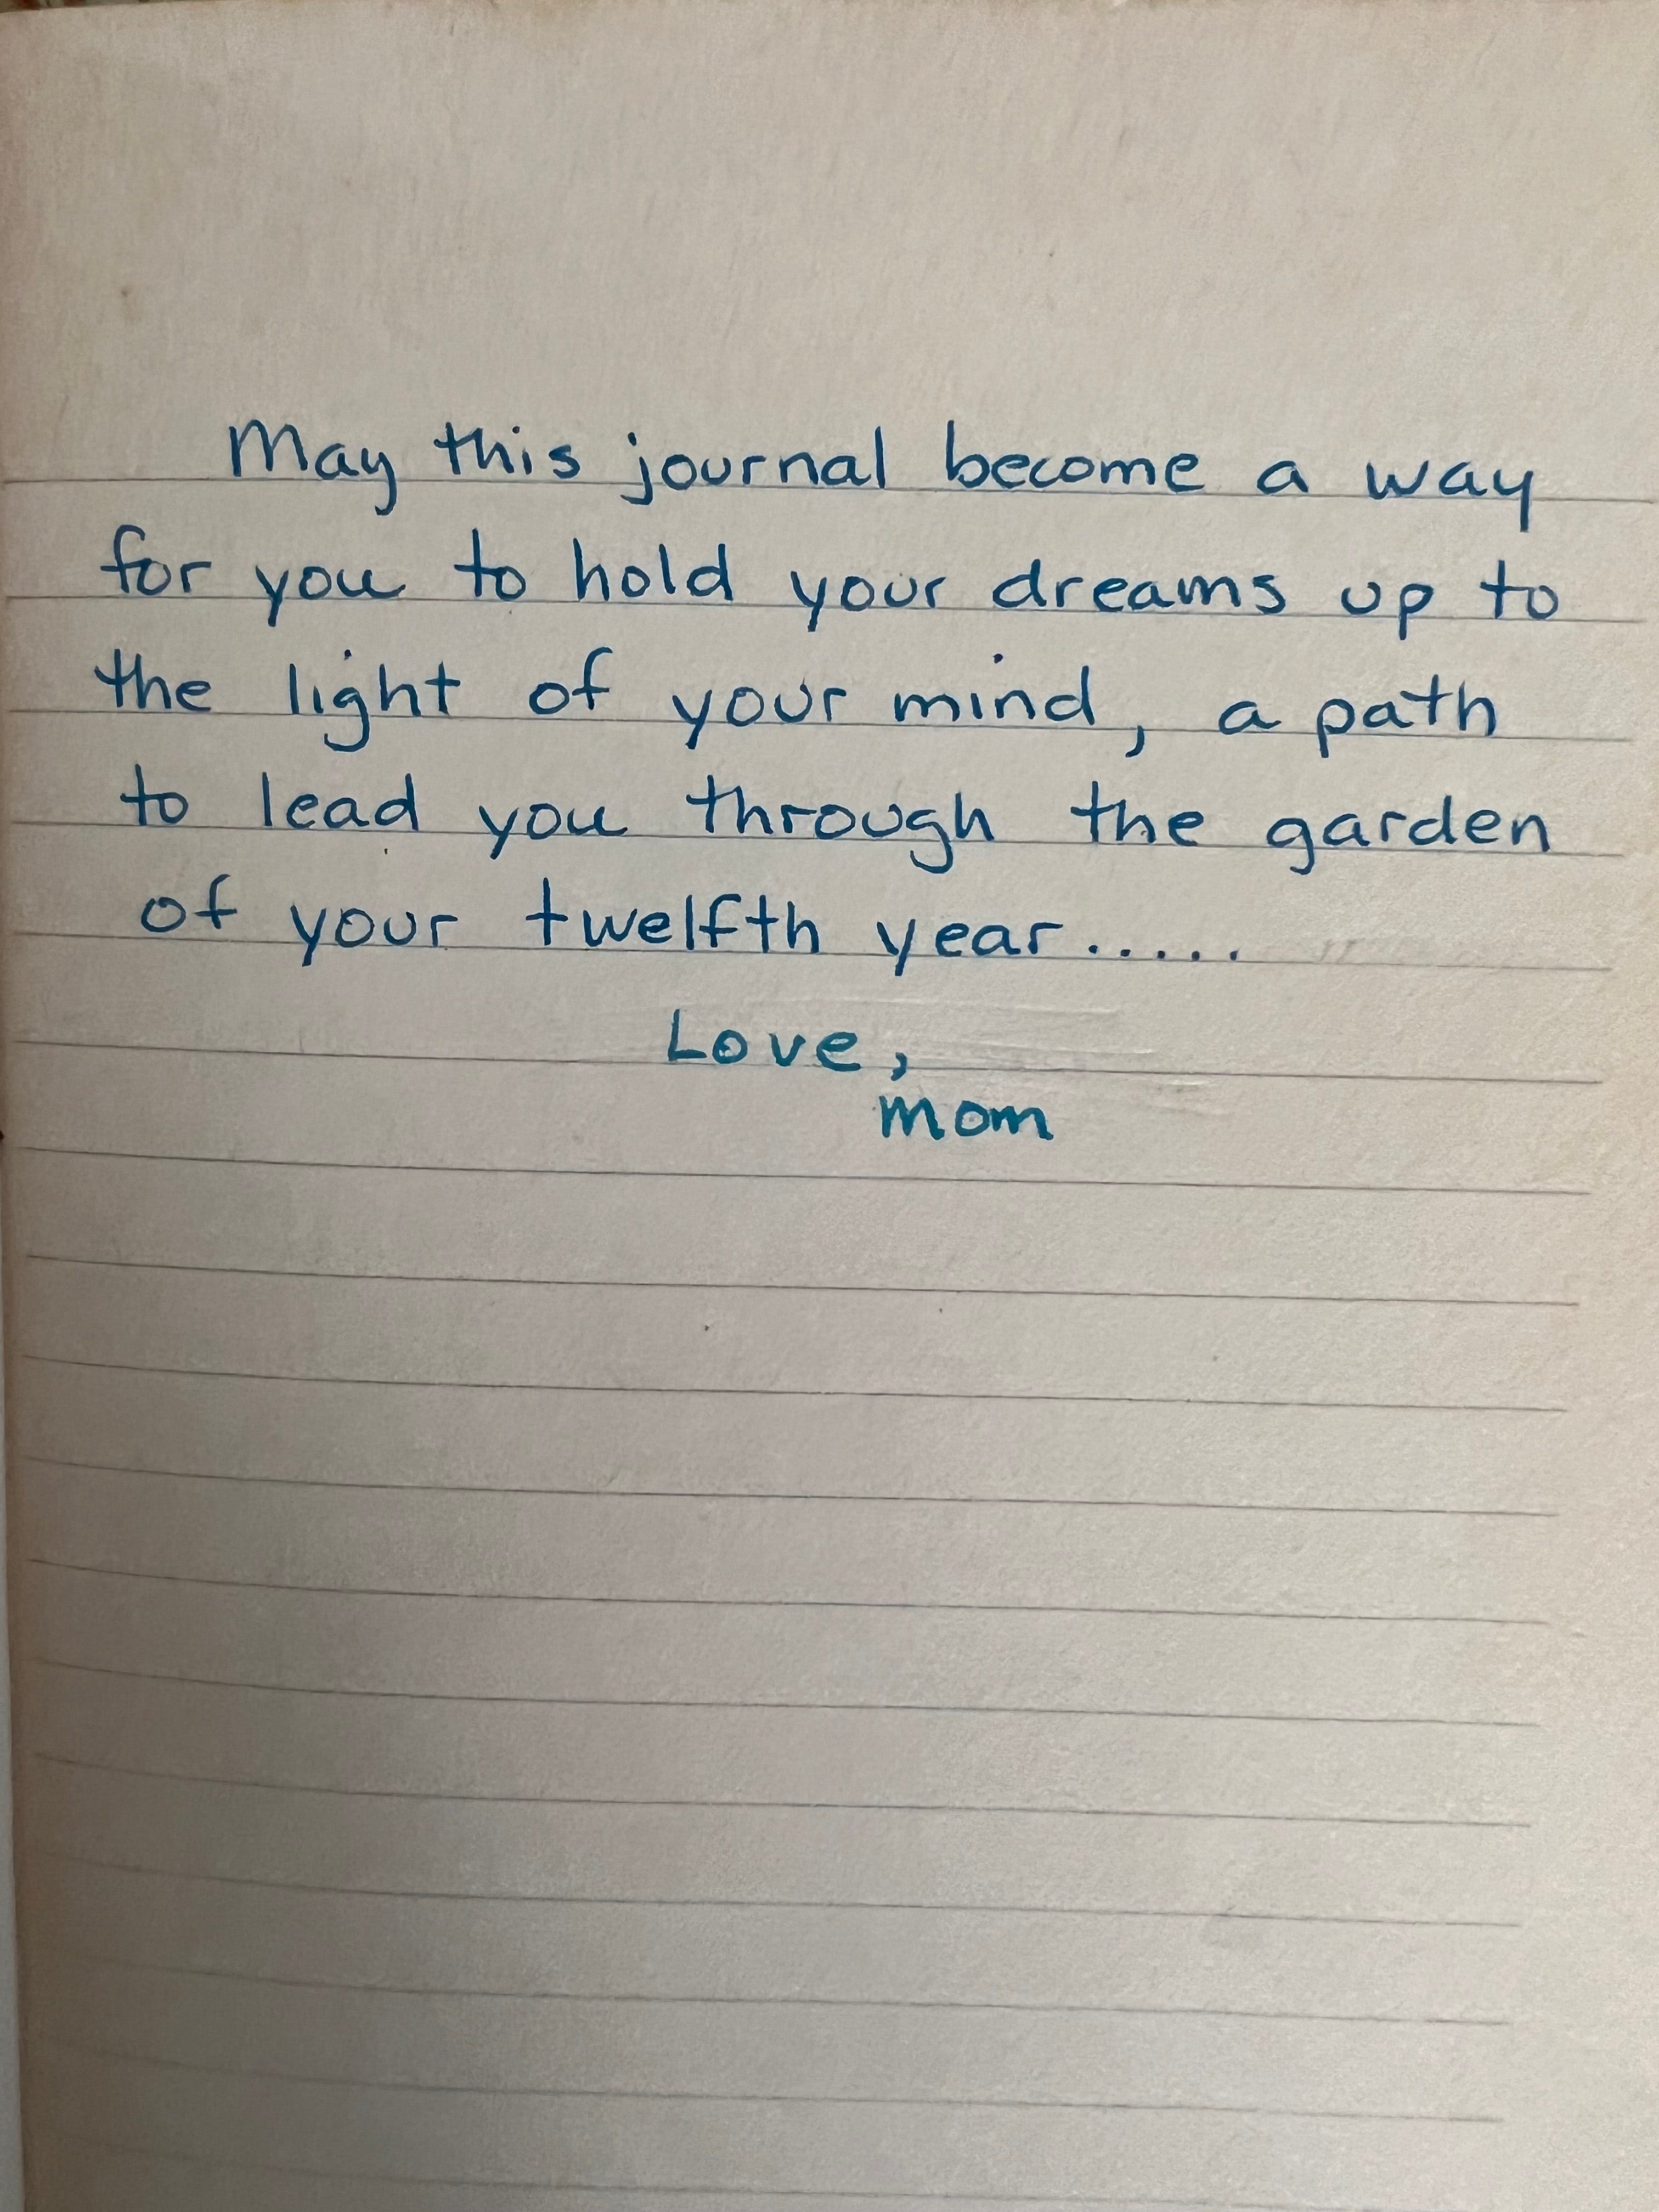 May this journal become a way
for you to hold your dreams up to
the light of your mind, a path
to lead you through the garden
of your twelfth year.....
Love,
Mom